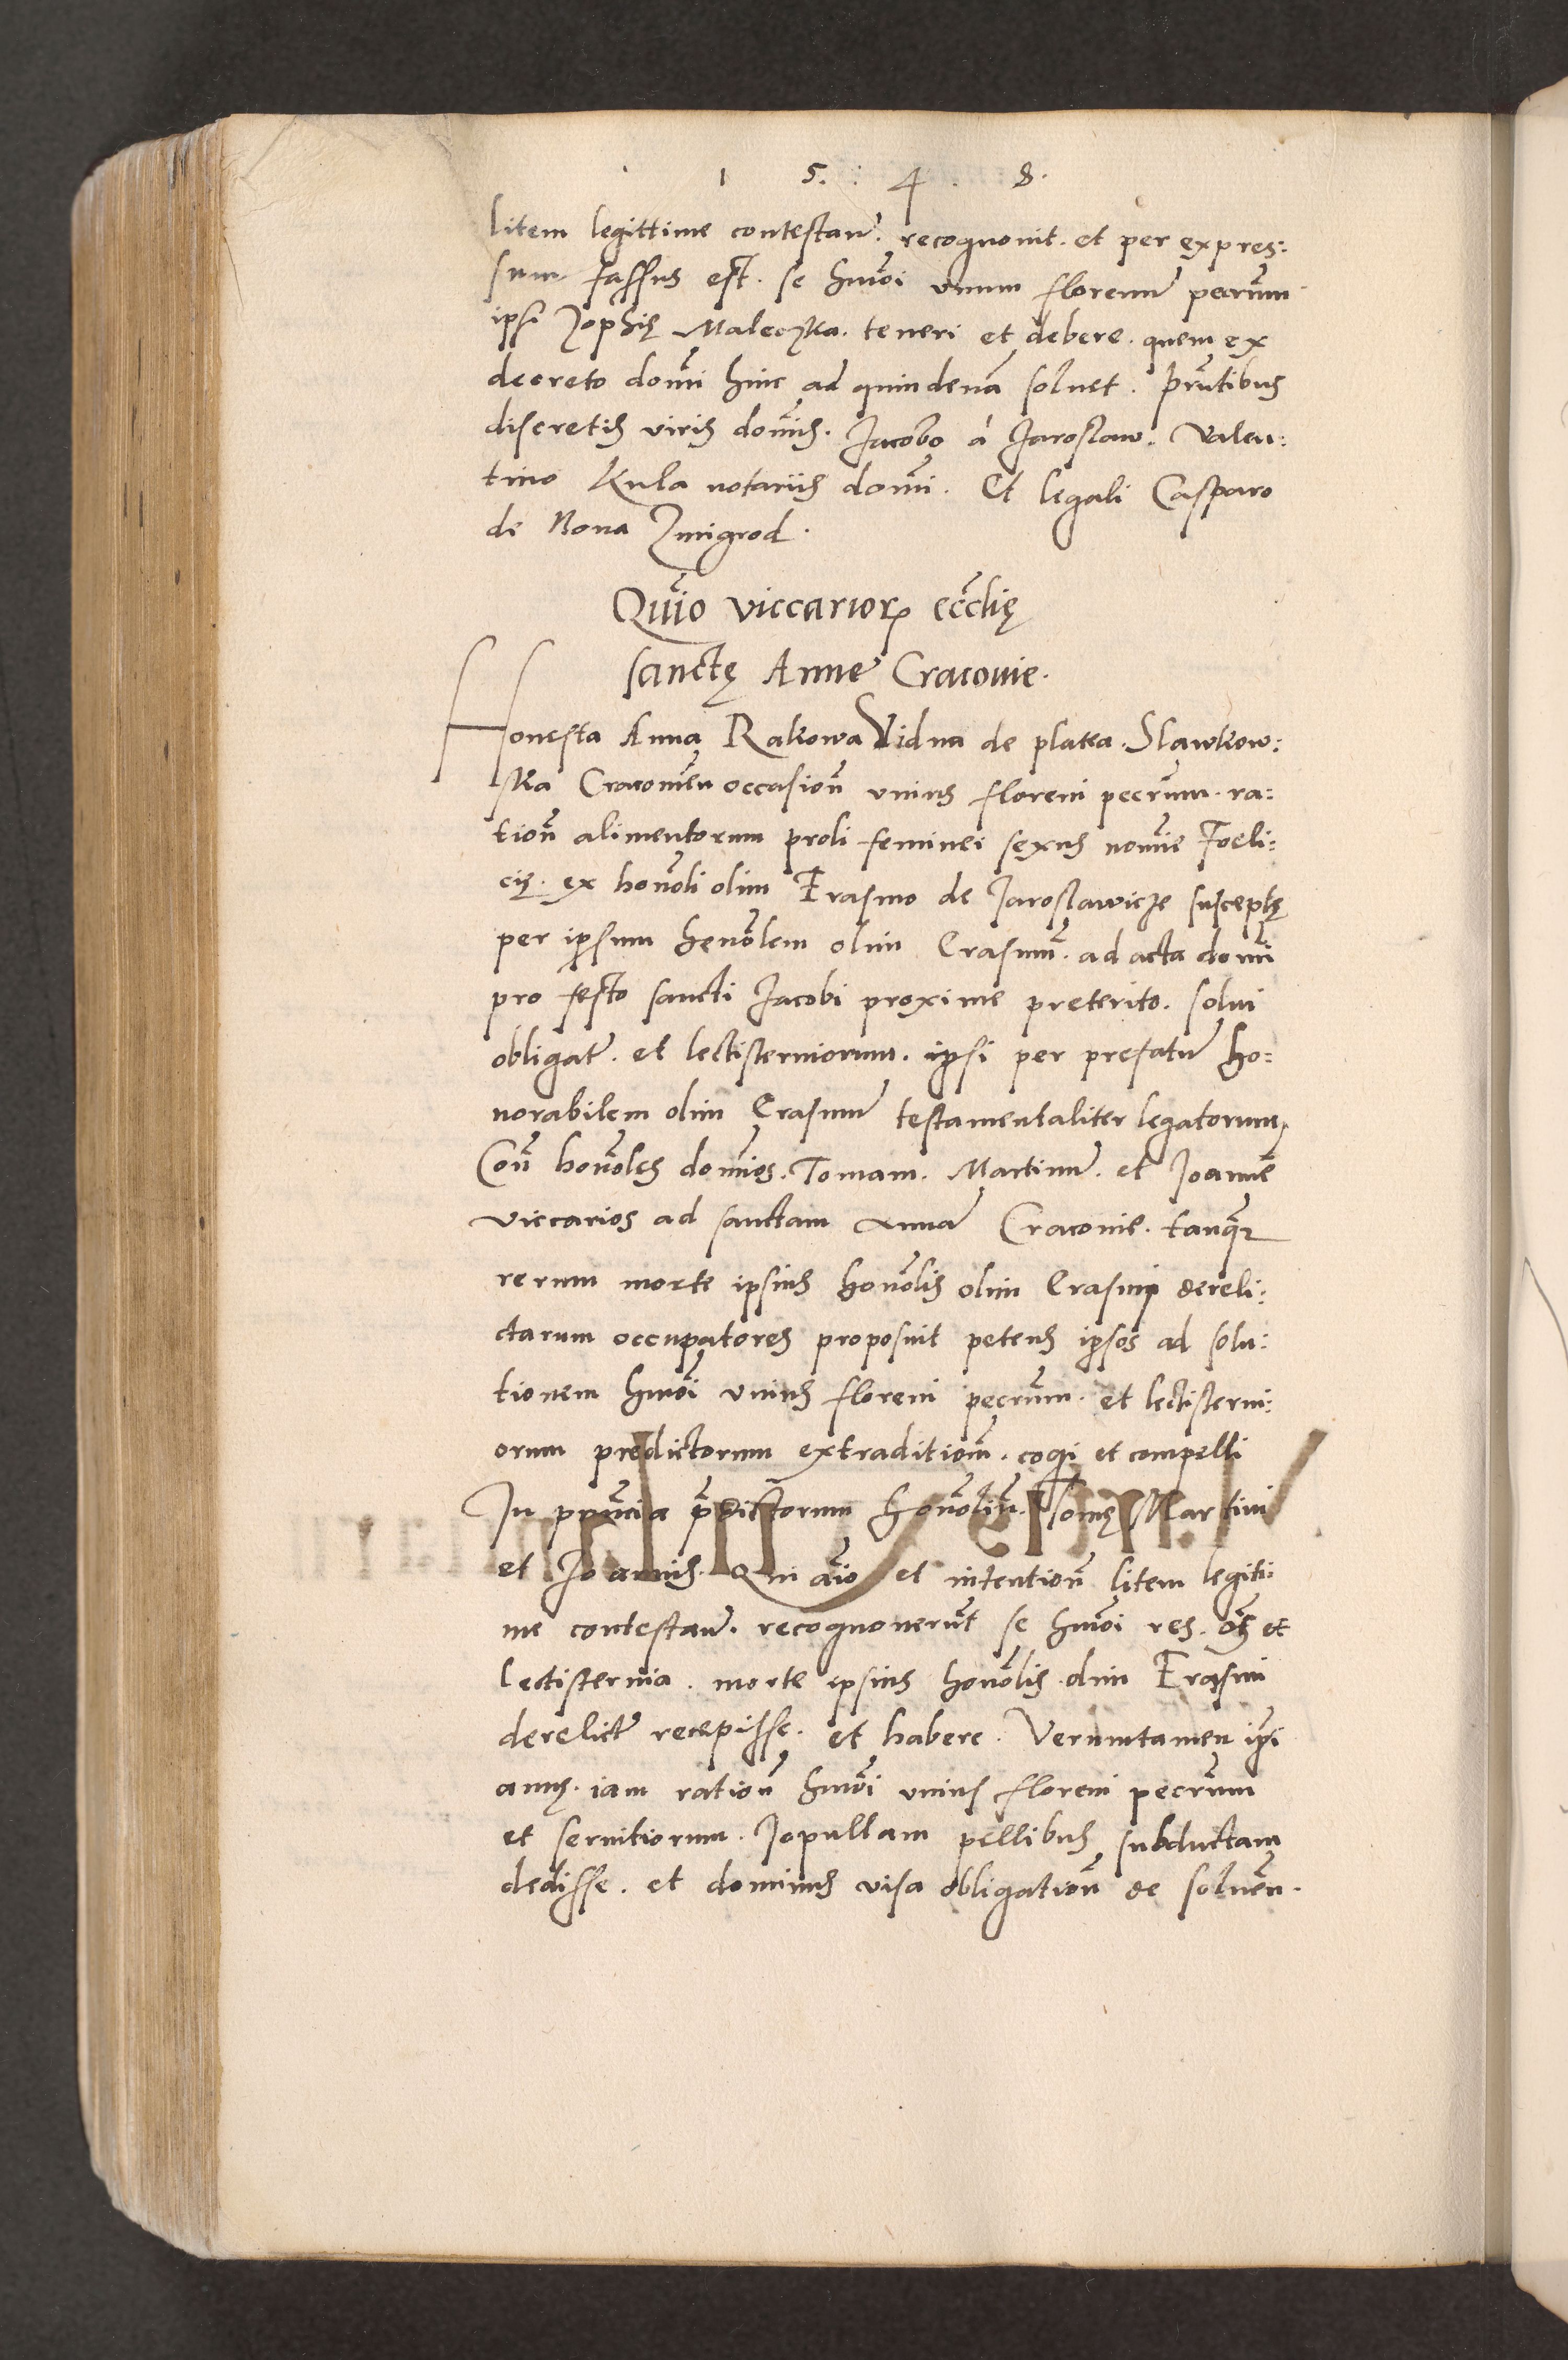 1 5. 4. 8.
litem legittime contestan̄. recognouit. et per expres:
sum fassus est. se hmōi vnum florenū pecun̄.
ipsi Zophię Maleczka. teneri et debere. quem ex
decreto domī hinc ad quindenā soluet. pn̄tibus
discretis viris dōmis. Jacobo a Jaroslaw. Valen:
tino Kula notariis domī. Et legali Casparo
de Noua Zmigrod.
Quīo viccarioꝝ eccl̄ię
sanctę Anne Cracouie.
Honesta Anna Rakowa Vidua de platea. Slawkow:
ska Cracouień occasion̄ vnius floreni pecun̄. ra:
tion̄ alimentorum proli feminei sexus nomīe Foeli:
cię. ex honol̄i olim Erasmo de Jaroslawicze susceptę
per ipsum honol̄em olim Erasmū. ad acta domī
pro festo sancti Jacobi proxime preterito. solui
obligat̄. et lectisterniorum. ipsi per prefatū ho:
norabilem olim Erasmū testamentaliter legatorum,
Con̄ honol̄es domīos. Tomam. Martinū. et Joannē
viccarios ad sanctam Annā Cracouie. tanqȝ
rerum morte ipsius honol̄is olim Erasmi dereli:
ctarum occupatores proposuit petens ipsos ad solu:
tionem hmōi vnius floreni pecun̄. et lectisterni:
orum predictorum extradition̄. cogi et compelli
In pn̄tia p̄dictorum honol̄iū. Tomę Martini
et Joannis. Qui āio et intention̄ litem legiti:
me contestan̄. recognouerūt se hmōi res. oēs et
lectisternia. morte ipsius honol̄is olim Erasmi
derelict̄ recepisse. et habere. Verumtamen ipsi
annę. iam ration̄ hmōi vnius floreni pecun̄
et seruitiorum. Jopullam pellibus subductam
dedisse. et dominus visa obligation̄ de soluen̄.